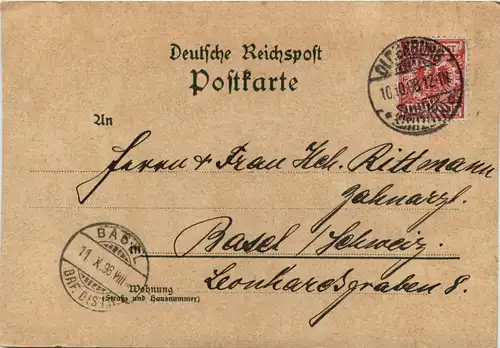 Deutsche Reichspost
Postkarte
OLDENBURG
10.10.98.12-1N.
An
Herrn & Frau Hch. Rittmann
Zahnarzt.
Basel / Schweiz.
Leonhardsgraben 8.
BASEL
11.X.98.VIII
BRF. DIST.
Wohnung
(Straße und Hausnummer)